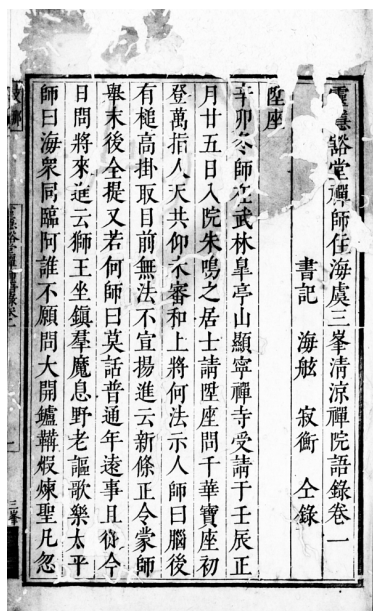 靈隱豁堂禪師住海虞三峯清涼禪院語錄卷一
書記 海舷 寂衡 仝錄
陞座
辛卯冬師在武林皐亭山顯寧禪寺受請于壬辰正
月廿五日入院朱鳴之居士請陞座問千華寶座初
登萬指人天共仰未審和上將何法示人師曰腦後
有槌高掛取目前無法不宣揚進云新條正令蒙師
舉末後全提又若何師曰莫話普通年遠事且從今
日問將來進云獅王坐鎮羣魔息野老謳歌樂太平
師曰海衆同臨阿誰不願問大開鑪鞴煆煉聖凡忽
三峯